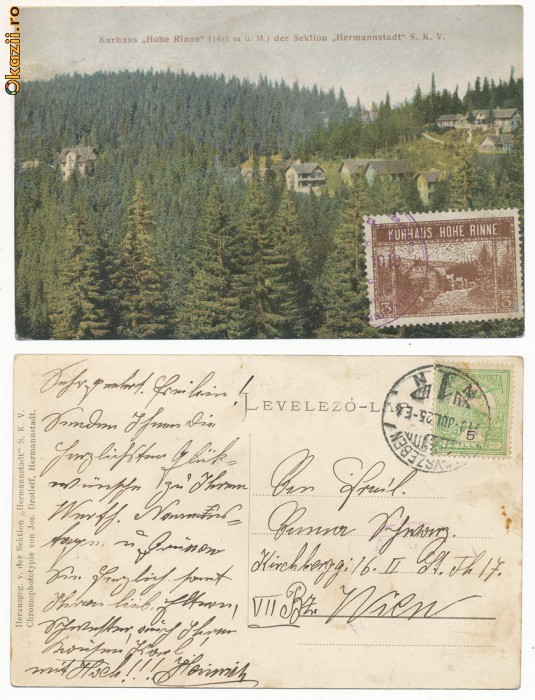 Okazii.ro
Kurhaus „Hohe Rinne“ (1403 m ü. M.) der Sektion „Hermannstadt“ S. K. V.
KURHAUS HOHE RINNE
3 3
Herausgeg. v. der Sektion „Hermannstadt“ S. K. V.
Chromophototypie von Jos. Drotleff, Hermannstadt.
LEVELEZŐ-LA
Sehr geehrt. Freilein!
Senden Ihnen die
herzlichsten Glück-
wünsche zu Ihrem
Werth. Namens-
tage u. Grüssen
Sie herzlich samt
Ihren lieb. Eltern,
Schwester, auch Ihrem
Karl
mit Hoch!!! Heinrich
An Freil.
Anna Schwarz
Kirchbergg. 16. II St. Th. 17.
VII Bz. Wien
JUL. 25
5